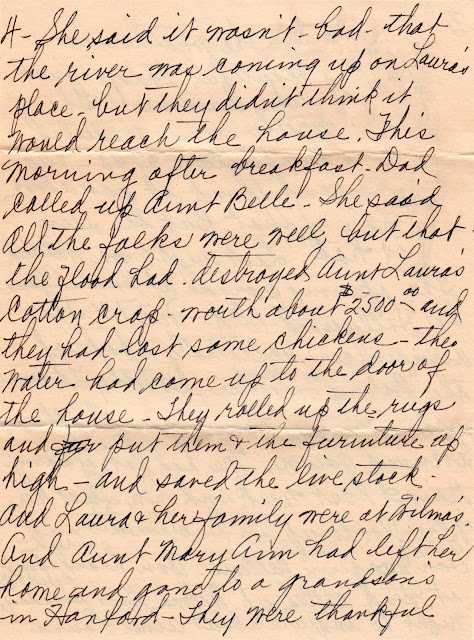 4- She said it wasn't - bad - that
the river was coming up on Laura's
place - but they didn't think it
would reach the house. This
morning after breakfast - Dad
called up Aunt Belle - She said
all the folks were well, but that
the flood had destroyed Aunt Laura's
cotton crop - worth about $2500.00 and
they had lost some chickens - the
water had come up to the door of
the house - They rolled up the rugs
and put them & the furniture up
high - and saved the live stock -
and Laura & her family were at Wilma's.
And Aunt Mary Ann had left her
home and gone to a grandson's
in Hanford - They were thankful